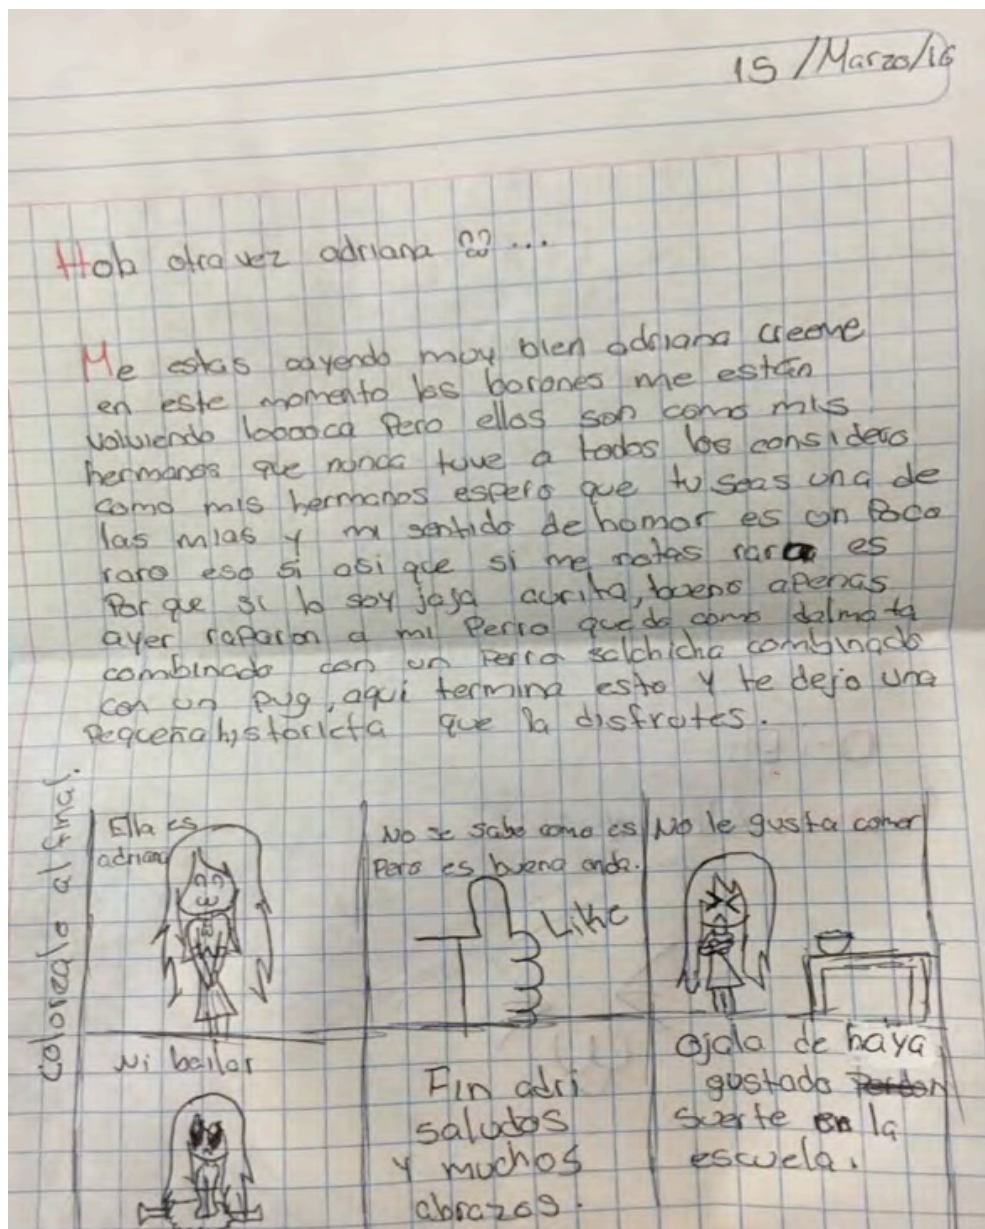 15/Marzo/16
Hola otra vez adriana :3 ...
Me estas cayendo muy bien adriana creeme
en este momento los barones me están
volviendo looooca Pero ellos son como mis
hermanos que nunca tuve a todos los considero
como mis hermanos espero que tu seas una de
las mias y mi sentido de homor es un Poco
raro eso si asi que si me notas rara es
Por que si lo soy jaja aurita, bueno apenas
ayer raparon a mi Perro quedo como dalmata
combinado con un Perro salchicha combinado
con un pug, aqui termina esto y te dejo una
Pequeña historieta que la disfrutes.
colorealo al final.
Ella es
adriana
No se sabe como es
Pero es buena onda.
Like
No le gusta comer
Ni bailar
Fin adri
saludos
y muchos
abrazos.
Ojala de haya
gustado
suerte en la
escuela.